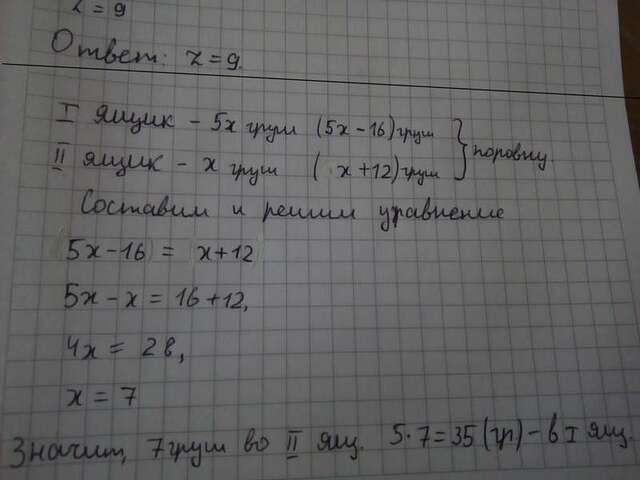 z = 9
Ответ: z = 9.
I ящик - 5x груш (5x - 16) груш } поровну.
II ящик - x груш ( x + 12) груш
Составим и решим уравнение
5x - 16 = x + 12
5x - x = 16 + 12,
4x = 28,
x = 7
Значит, 7 груш во II ящ. 5·7 = 35 (гр) - в I ящ.